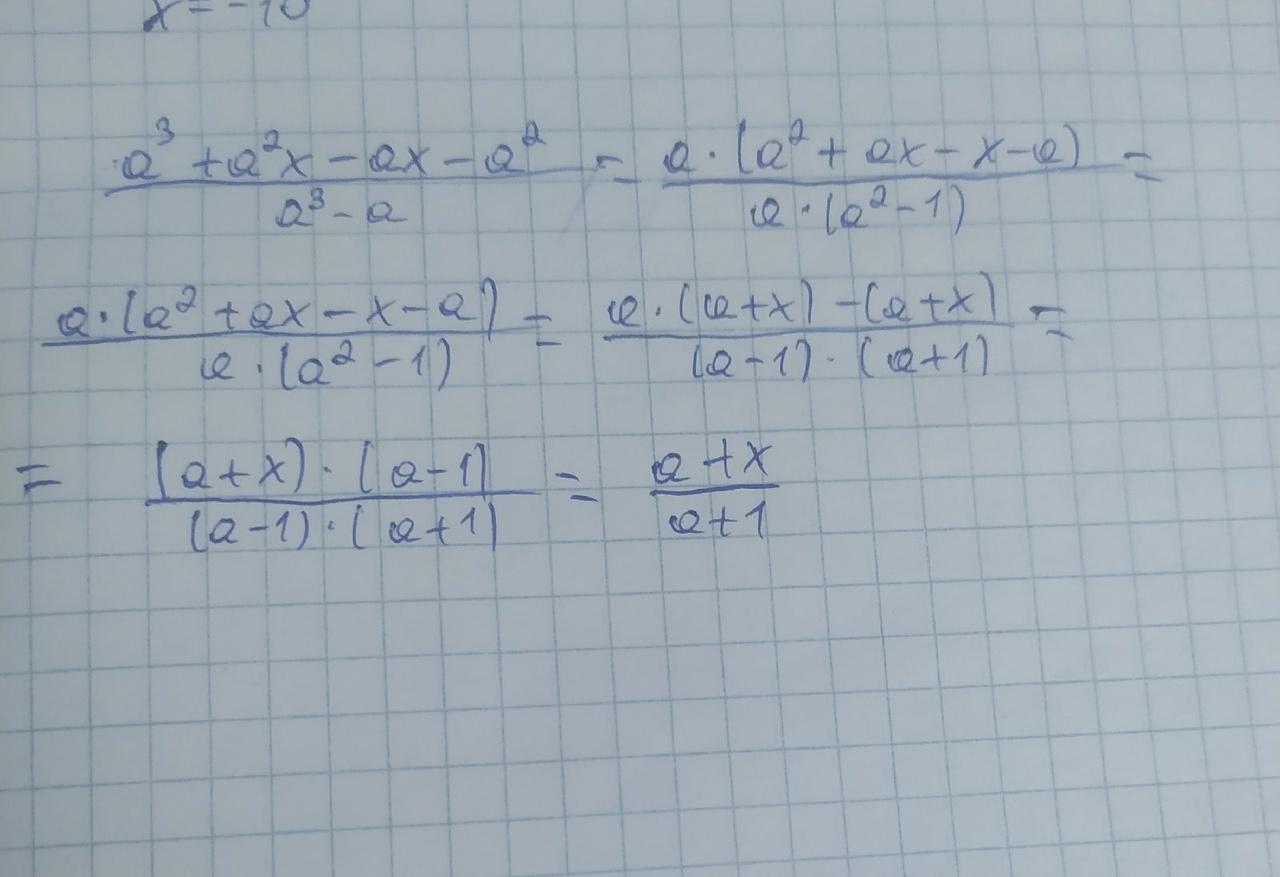 x = -10
a³ + a²x - ax - a² / a³ - a = a · (a² + ax - x - a) / a · (a² - 1) =
a · (a² + ax - x - a) / a · (a² - 1) = a · (a + x) - (a + x) / (a - 1) · (a + 1) =
= (a + x) · (a - 1) / (a - 1) · (a + 1) = a + x / a + 1